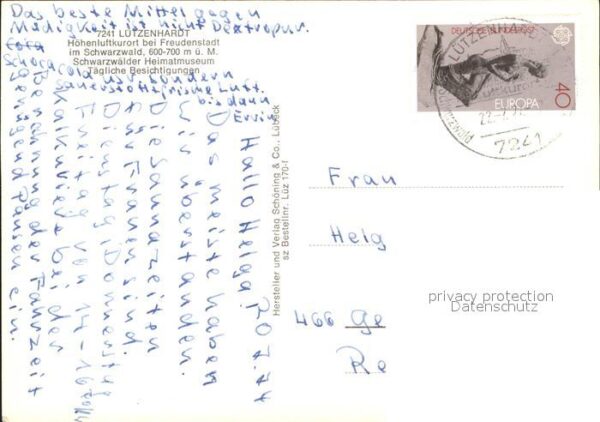 Das beste Mittel gegen
Müdigkeit ist nicht Dextropur.
7241 LÜTZENHARDT
Höhenluftkurort bei Freudenstadt
im Schwarzwald, 600-700 m ü. M.
Schwarzwälder Heimatmuseum
Tägliche Besichtigungen
usw. sondern
sauerstoffreiche Luft.
bis dann
Erwin
Hallo Helga! 20.7.74
Das meiste haben
wir überstanden.
Die Sauna zeiten
für Frauen sind
Dienstag, Donnerstag
Freitag von 14-16
bei der
der Fahrzeit
Pausen ein.
Hersteller und Verlag Schöning & Co., Lübeck
sz Bestellnr. Lüz 170-f
DEUTSCHE BUNDESPOST
EUROPA
40
LÜTZENHARDT
7241
Frau
Helg
466 Ge
Re
privacy protection
Datenschutz